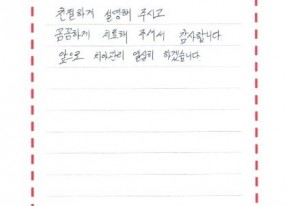 친절하게 설명해 주시고
꼼꼼하게 치료해 주셔서 감사합니다
앞으로 치아관리 열심히 하겠습니다